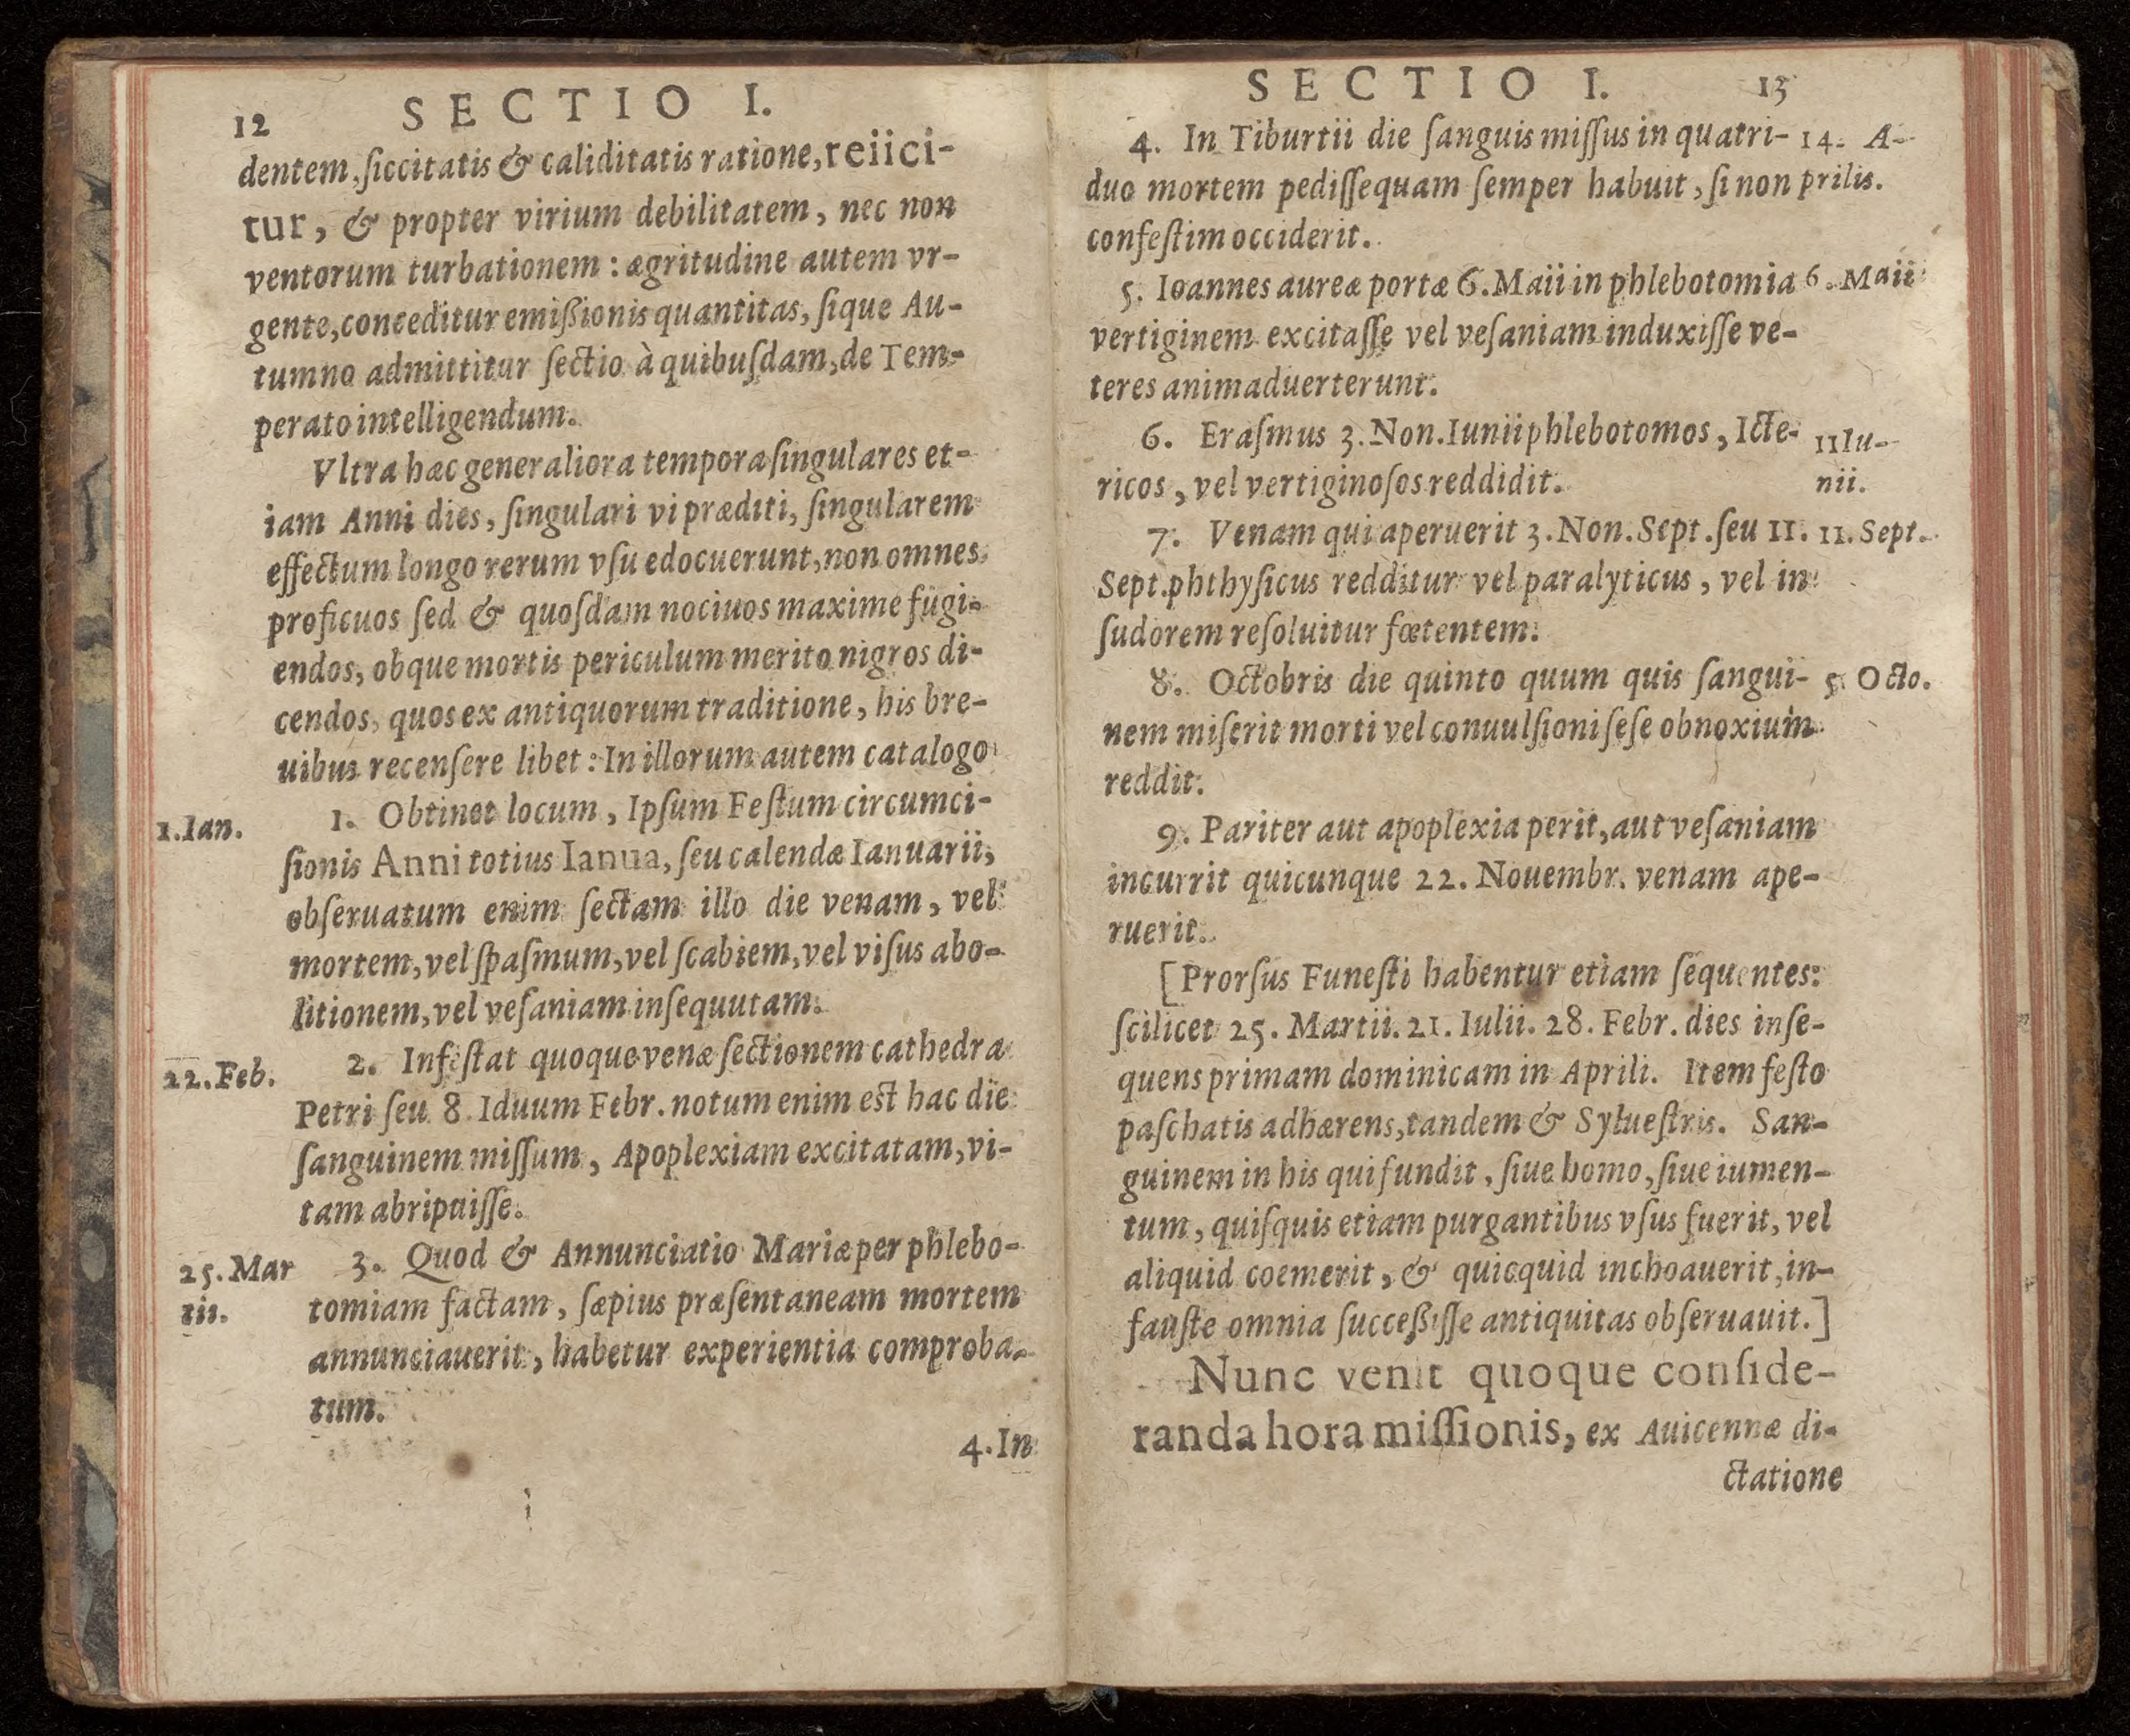 12 SECTIO I.
dentem, ſiccitatis & caliditatis ratione, reiici-
tur, & propter virium debilitatem, nec non
ventorum turbationem : ægritudine autem vr-
gente, conceditur emiſſionis quantitas, ſique Au-
tumno admittitur ſectio à quibuſdam, de Tem-
perato intelligendum.
Vltra hæc generaliora tempora ſingulares et-
iam Anni dies, ſingulari vi præditi, ſingularem
effectum longo rerum vſu edocuerunt, non omnes
proficuos ſed & quoſdam nociuos maxime fugi-
endos, obque mortis periculum merito nigros di-
cendos, quos ex antiquorum traditione, his bre-
uibus recenſere libet : In illorum autem catalogo
1.Ian. 1. Obtinet locum, Ipſum Feſtum circumci-
ſionis Anni totius Ianua, ſeu calendæ Ianuarii,
obſeruatum enim ſectam illo die venam, vel
mortem, vel ſpaſmum, vel ſcabiem, vel viſus abo-
litionem, vel veſaniam inſequutam.
22.Feb. 2. Infeſtat quoque venæ ſectionem cathedra
Petri ſeu 8 Iduum Febr. notum enim est hac die
ſanguinem miſſum, Apoplexiam excitatam, vi-
tam abripuiſſe.
25.Mar 3. Quod & Annunciatio Mariæ per phlebo-
tii. tomiam factam, ſæpius præſentaneam mortem
annunciauerit, habetur experientia comproba-
tum.
4. In
SECTIO I. 13
4. In Tiburtii die ſanguis miſſus in quatri- 14. A-
duo mortem pediſſequam ſemper habuit, ſi non prilis.
confeſtim occiderit.
5. Ioannes aureæ portæ 6. Maii in phlebotomia 6. Maii
vertiginem excitaſſe vel veſaniam induxiſſe ve-
teres animaduerterunt.
6. Eraſmus 3. Non. Iunii phlebotomos, Icte- 11 Iu-
ricos, vel vertiginoſos reddidit. nii.
7. Venam qui aperuerit 3. Non. Sept. ſeu 11. 11. Sept.
Sept. phthyſicus redditur vel paralyticus, vel in
ſudorem reſoluitur fœtentem.
8. Octobris die quinto quum quis ſangui- 5. Octo.
nem miſerit morti vel conuulſioni ſeſe obnoxium
reddit.
9. Pariter aut apoplexia perit, aut veſaniam
incurrit quicunque 22. Nouembr. venam ape-
ruerit.
[Prorſus Funeſti habentur etiam ſequentes:
ſcilicet 25. Martii. 21. Iulii. 28. Febr. dies inſe-
quens primam dominicam in Aprili. Item feſto
paſchatis adhærens, tandem & Sylueſtris. San-
guinem in his qui fundit, ſiue homo, ſiue iumen-
tum, quiſquis etiam purgantibus vſus fuerit, vel
aliquid coemerit, & quicquid inchoauerit, in-
fauſte omnia ſucceßiſſe antiquitas obſeruauit.]
Nunc venit quoque conſide-
randa hora miſſionis, ex Auicennæ di-
ctatione